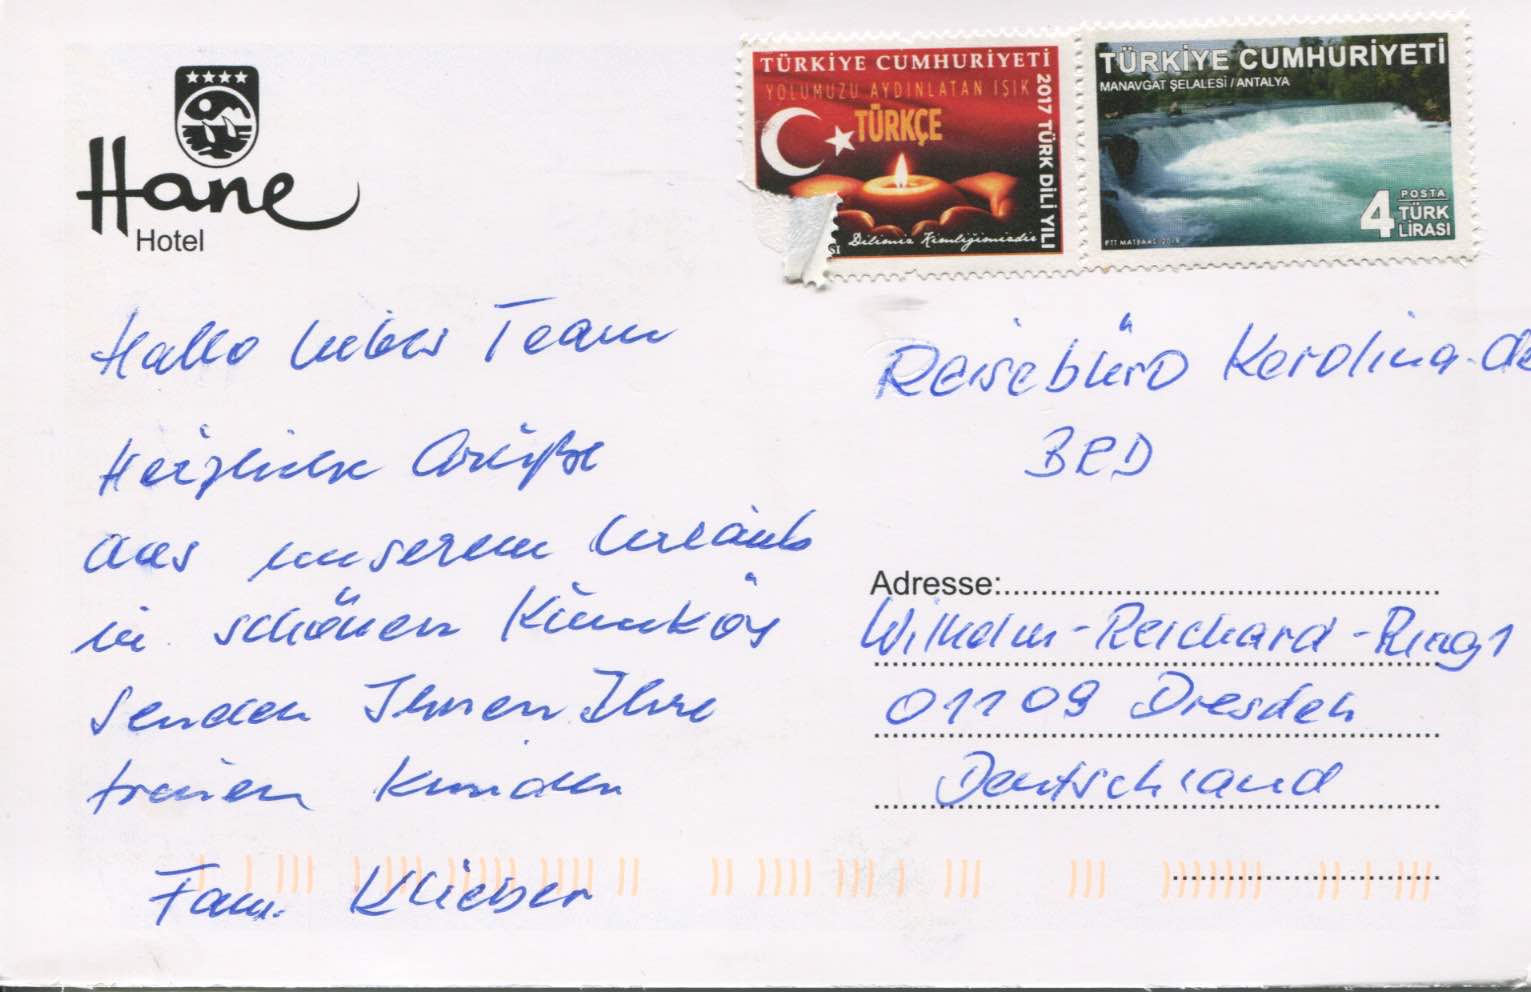 Hane
Hotel
TÜRKİYE CUMHURİYETİ
YOLUMUZU AYDINLATAN IŞIK
TÜRKÇE
2017 TÜRK DİLİ YILI
Dilimiz Kimliğimizdir
TÜRKİYE CUMHURİYETİ
MANAVGAT ŞELALESİ / ANTALYA
4 POSTA
TÜRK
LİRASI
PTT MATBAASI
Hallo liebes Team
Herzliche Grüße
aus unserem Urlaub
in schönen Kumköy
senden Ihnen Ihre
treuen Kunden
Fam. Klieber
Reisebüro
Adresse:
Wilhelm-Reichard-Ring 1
01109 Dresden
Deutschland